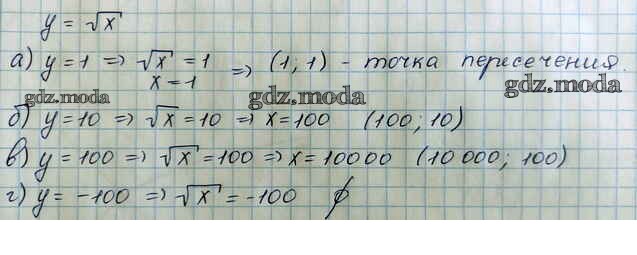 y = √x
а) y = 1 => √x = 1 => (1; 1) - точка пересечения.
x = 1
gdz.moda gdz.moda gdz.moda
б) y = 10 => √x = 10 => x = 100 (100; 10)
в) y = 100 => √x = 100 => x = 10000 (10 000; 100)
г) y = -100 => √x = -100 ∅